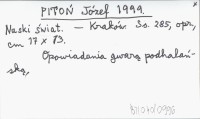 PITOŃ Józef 1999.
Naski świat. — Kraków. Ss. 285, opr,
cm 17 x 13.
Opowiadania gwarą podhalań-
ską,